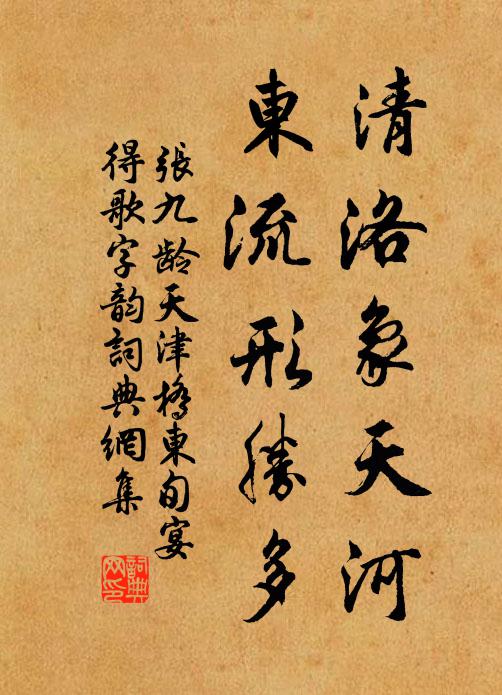 清洛象天河
東流形勝多
張九齡天津橋東旬宴
得歌字韵詞典網集
詞典网印